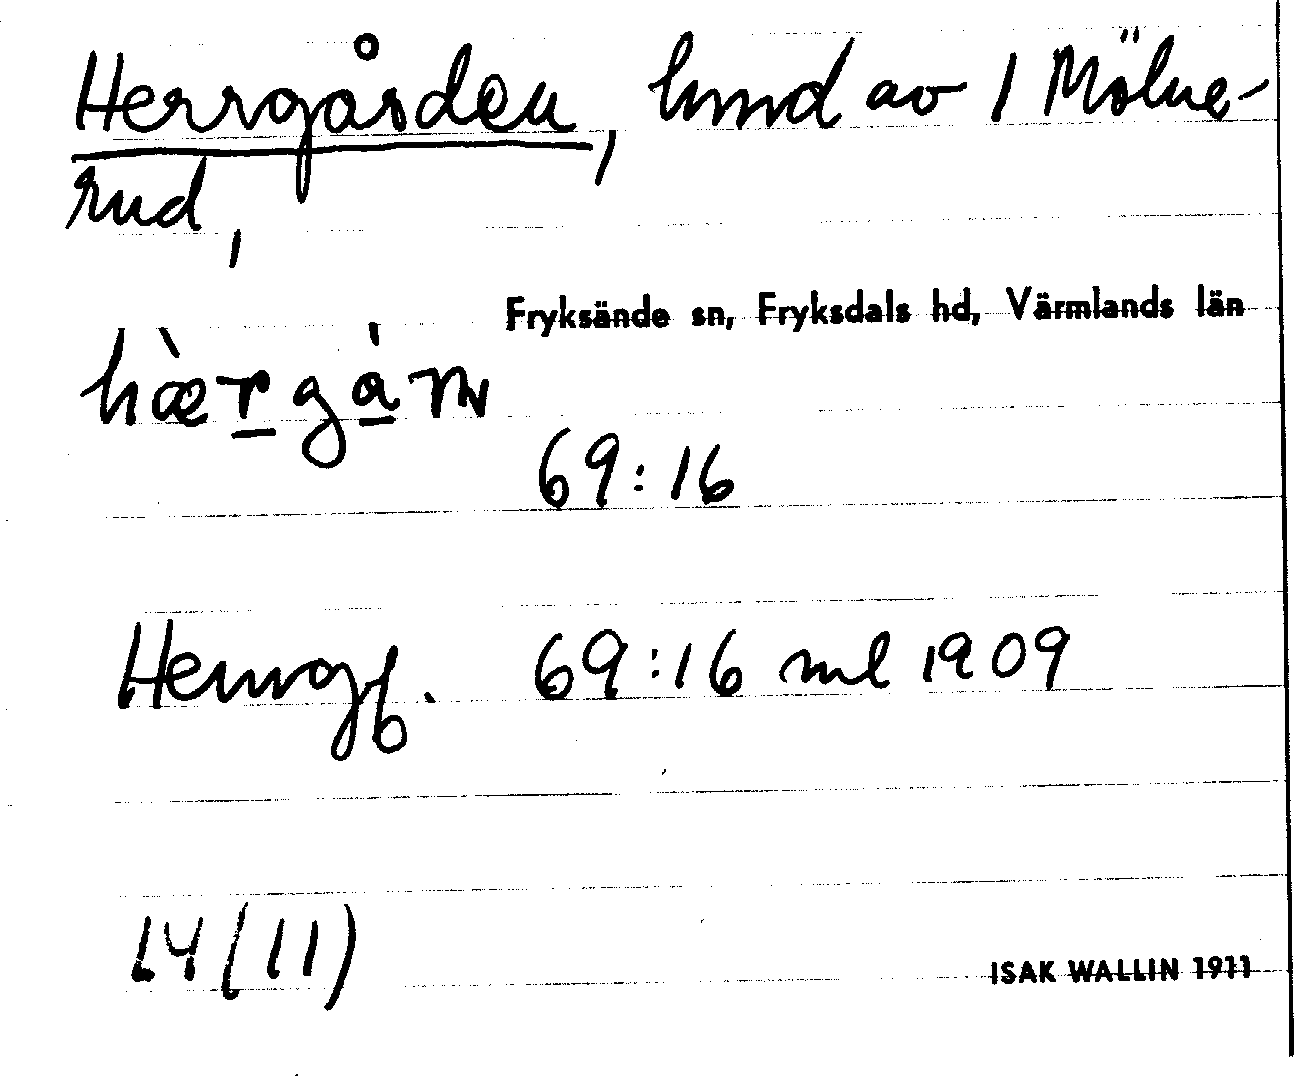 Herrgården, hmd av 1 Mölne-
rud,
Fryksände sn, Fryksdals hd, Värmlands län
69:16
69:16 ml 1909
14 (11)
ISAK WALLIN 1911